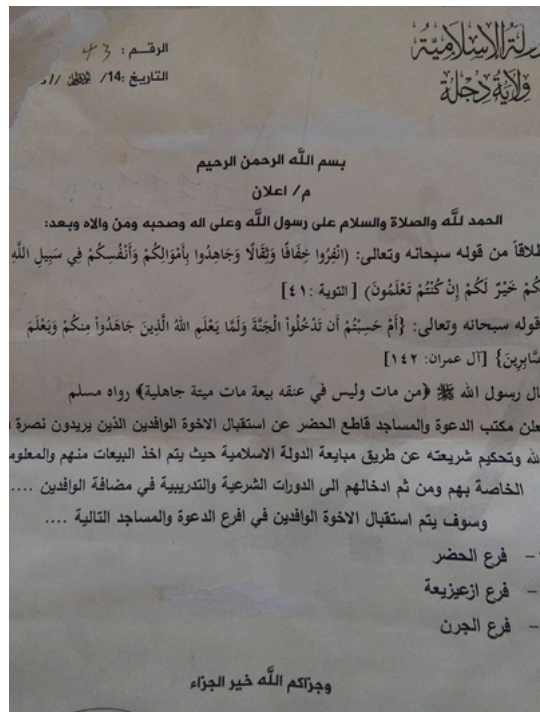 الرقم : 43
ولة الإسلامية
التاريخ :14/
ولاية دجلة
بسم الله الرحمن الرحيم
م/ اعلان
الحمد لله والصلاة والسلام على رسول الله وعلى اله وصحبه ومن والاه وبعد:
طلاقاً من قوله سبحانه وتعالى: (انْفِرُوا خِفَافًا وَثِقَالًا وَجَاهِدُوا بِأَمْوَالِكُمْ وَأَنْفُسِكُمْ فِي سَبِيلِ اللَّهِ
كُمْ خَيْرٌ لَكُمْ إِنْ كُنْتُمْ تَعْلَمُونَ) [التوبة :٤١]
قوله سبحانه وتعالى: {أَمْ حَسِبْتُمْ أَن تَدْخُلُواْ الْجَنَّةَ وَلَمَّا يَعْلَمِ اللهُ الَّذِينَ جَاهَدُواْ مِنكُمْ وَيَعْلَمَ
صَّابِرِينَ} [آل عمران: ١٤٢]
ال رسول الله ﷺ ﴿من مات وليس في عنقه بيعة مات ميتة جاهلية﴾ رواه مسلم
علن مكتب الدعوة والمساجد قاطع الحضر عن استقبال الاخوة الوافدين الذين يريدون نصرة
لله وتحكيم شريعته عن طريق مبايعة الدولة الاسلامية حيث يتم اخذ البيعات منهم والمعلوم
الخاصة بهم ومن ثم ادخالهم الى الدورات الشرعية والتدريبية في مضافة الوافدين ....
وسوف يتم استقبال الاخوة الوافدين في افرع الدعوة والمساجد التالية ....
- فرع الحضر
- فرع ازعيزيعة
- فرع الجرن
وجزاكم الله خير الجزاء